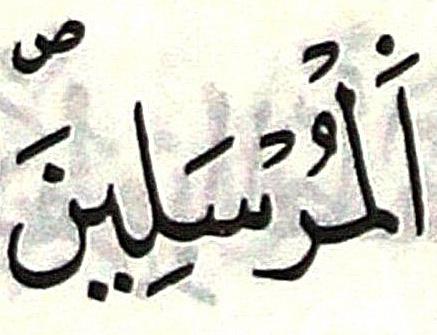 اَ۬لْمُرْسَلِينَۖ